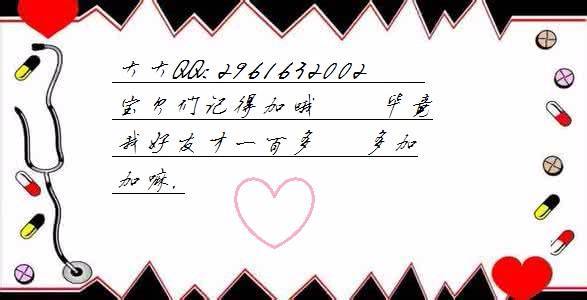 大大QQ:2961632002
宝贝们记得加哦 毕竟
我好友才一百多 多加
加嘛.